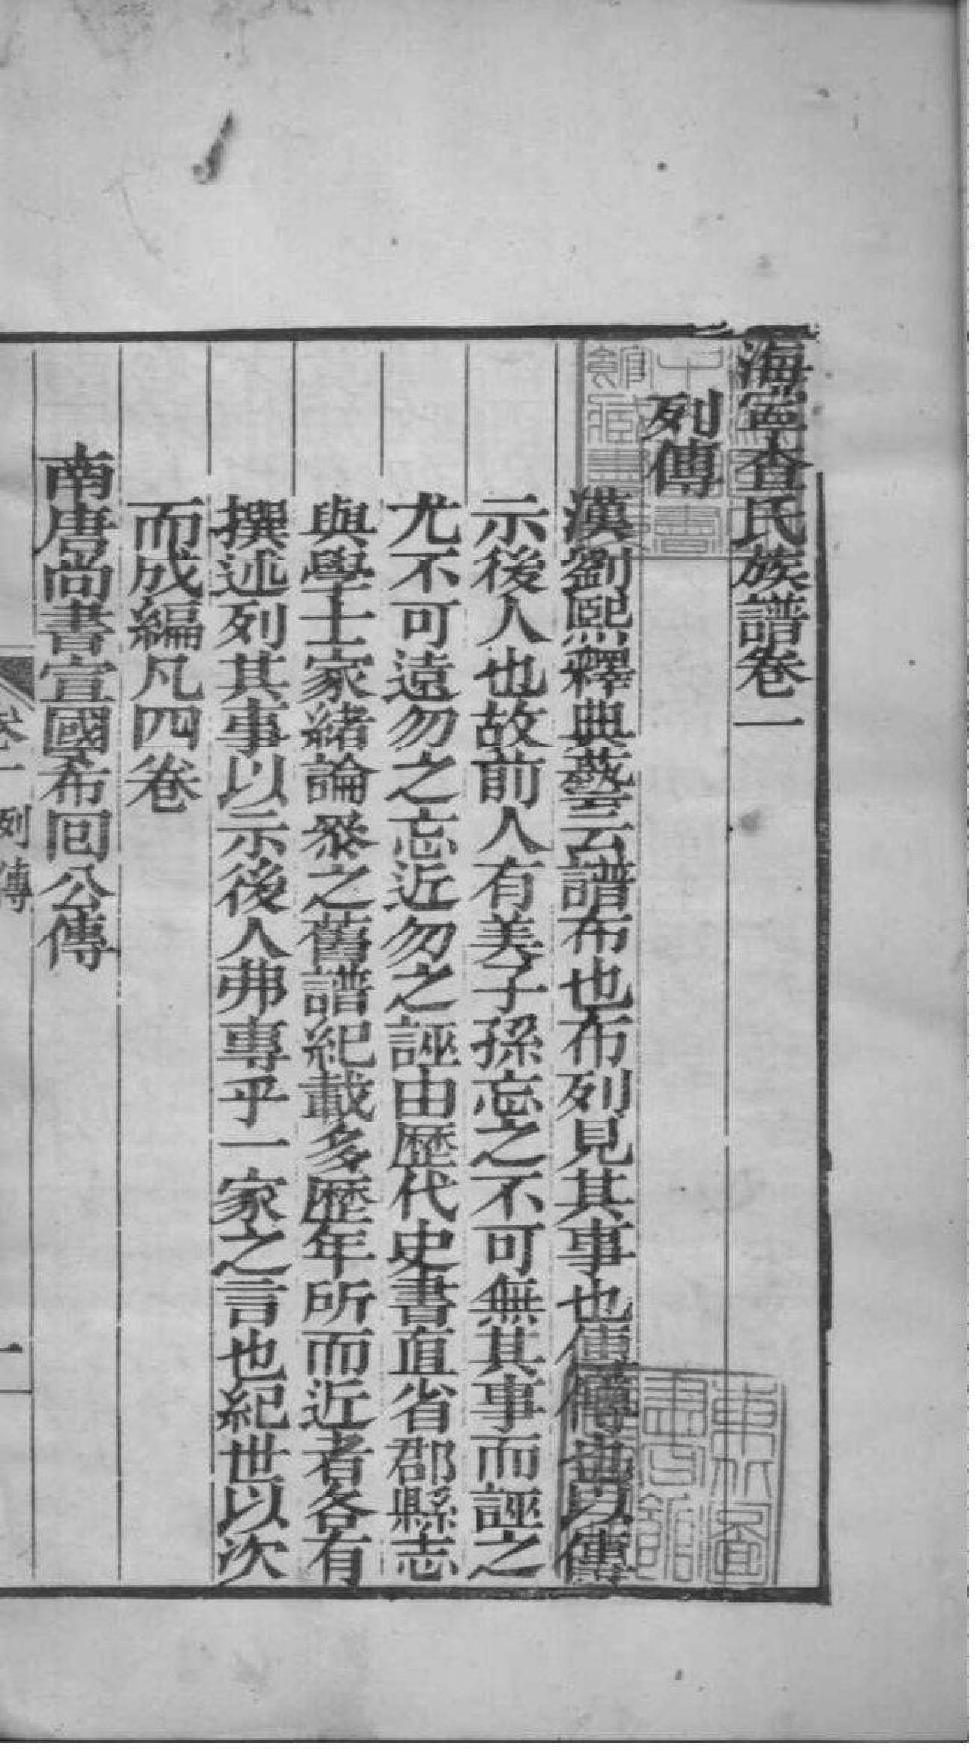 海寧查氏族譜卷一
列傳
漢劉熙釋典藝云譜布也布列見其事也傳傳也以傳
示後人也故前人有美子孫忘之不可無其事而誣之
尤不可遠勿之忘近勿之誣由歷代史書直省郡縣志
與學士家緒論叅之舊譜紀載多歷年所而近者各有
撰述列其事以示後人弗專乎一家之言也紀世以次
而成編凡四卷
南唐尚書宣國布囘公傳
卷一 列傳 一